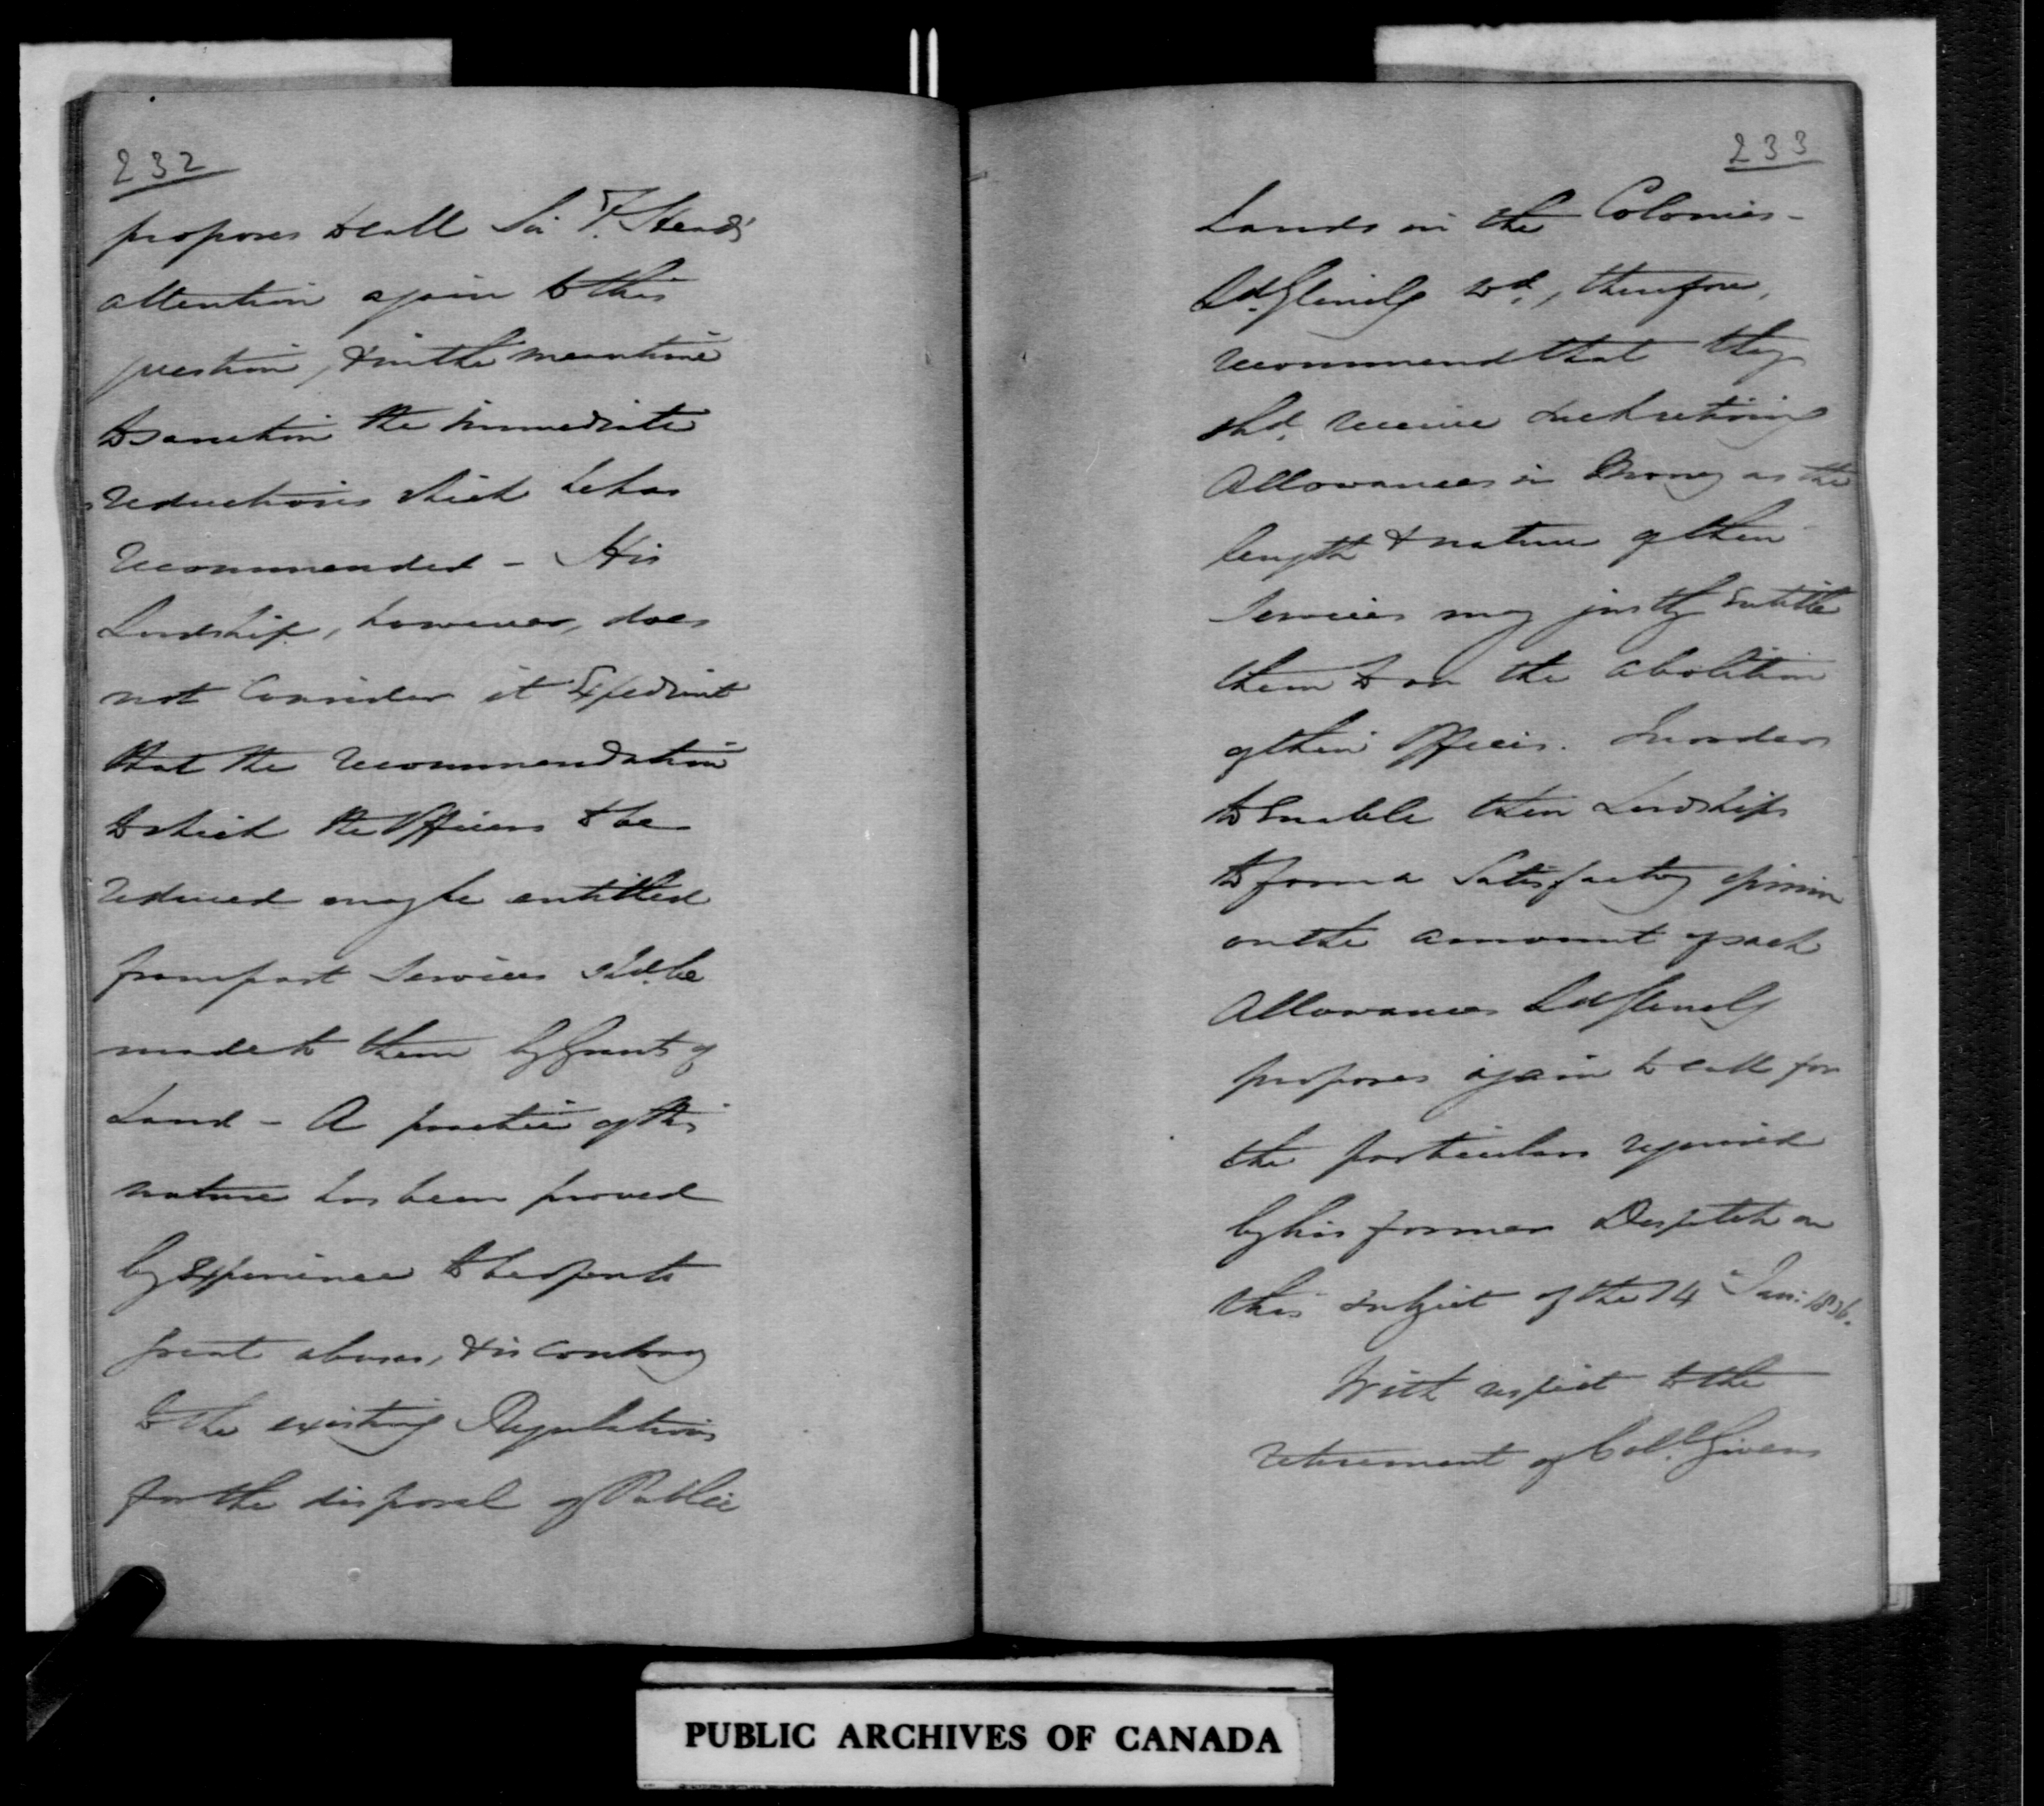 232
proposes to call Sir F. Head's
attention again to this
question, & in the meantime
to sanction the immediate
reductions which he has
recommended - His
Lordship, however, does
not Consider it Expedient
that the recommendation
to which the Officers to be
reduced may be entitled
from past Services shd. be
made to them by Grants of
Land - A practice of this
nature has been proved
by Experience to be open to
great abuses, & is contrary
to the existing Regulations
for the disposal of Public
233
Lands in the Colonies -
Ld. Glenelg wd., therefore,
recommend that they
shd. receive such retiring
Allowances in Money as the
length & nature of their
Services may justly Entitle
them to on the abolition
of their Offices. In order
to Enable their Lordships
to form a Satisfactory opinion
on the amount of such
Allowances Ld Glenelg
proposes again to call for
the particulars required
by his former Despatch on
this subject of the 14 Jan: 1836.
With respect to the
retirement of Coll. Givens
PUBLIC ARCHIVES OF CANADA